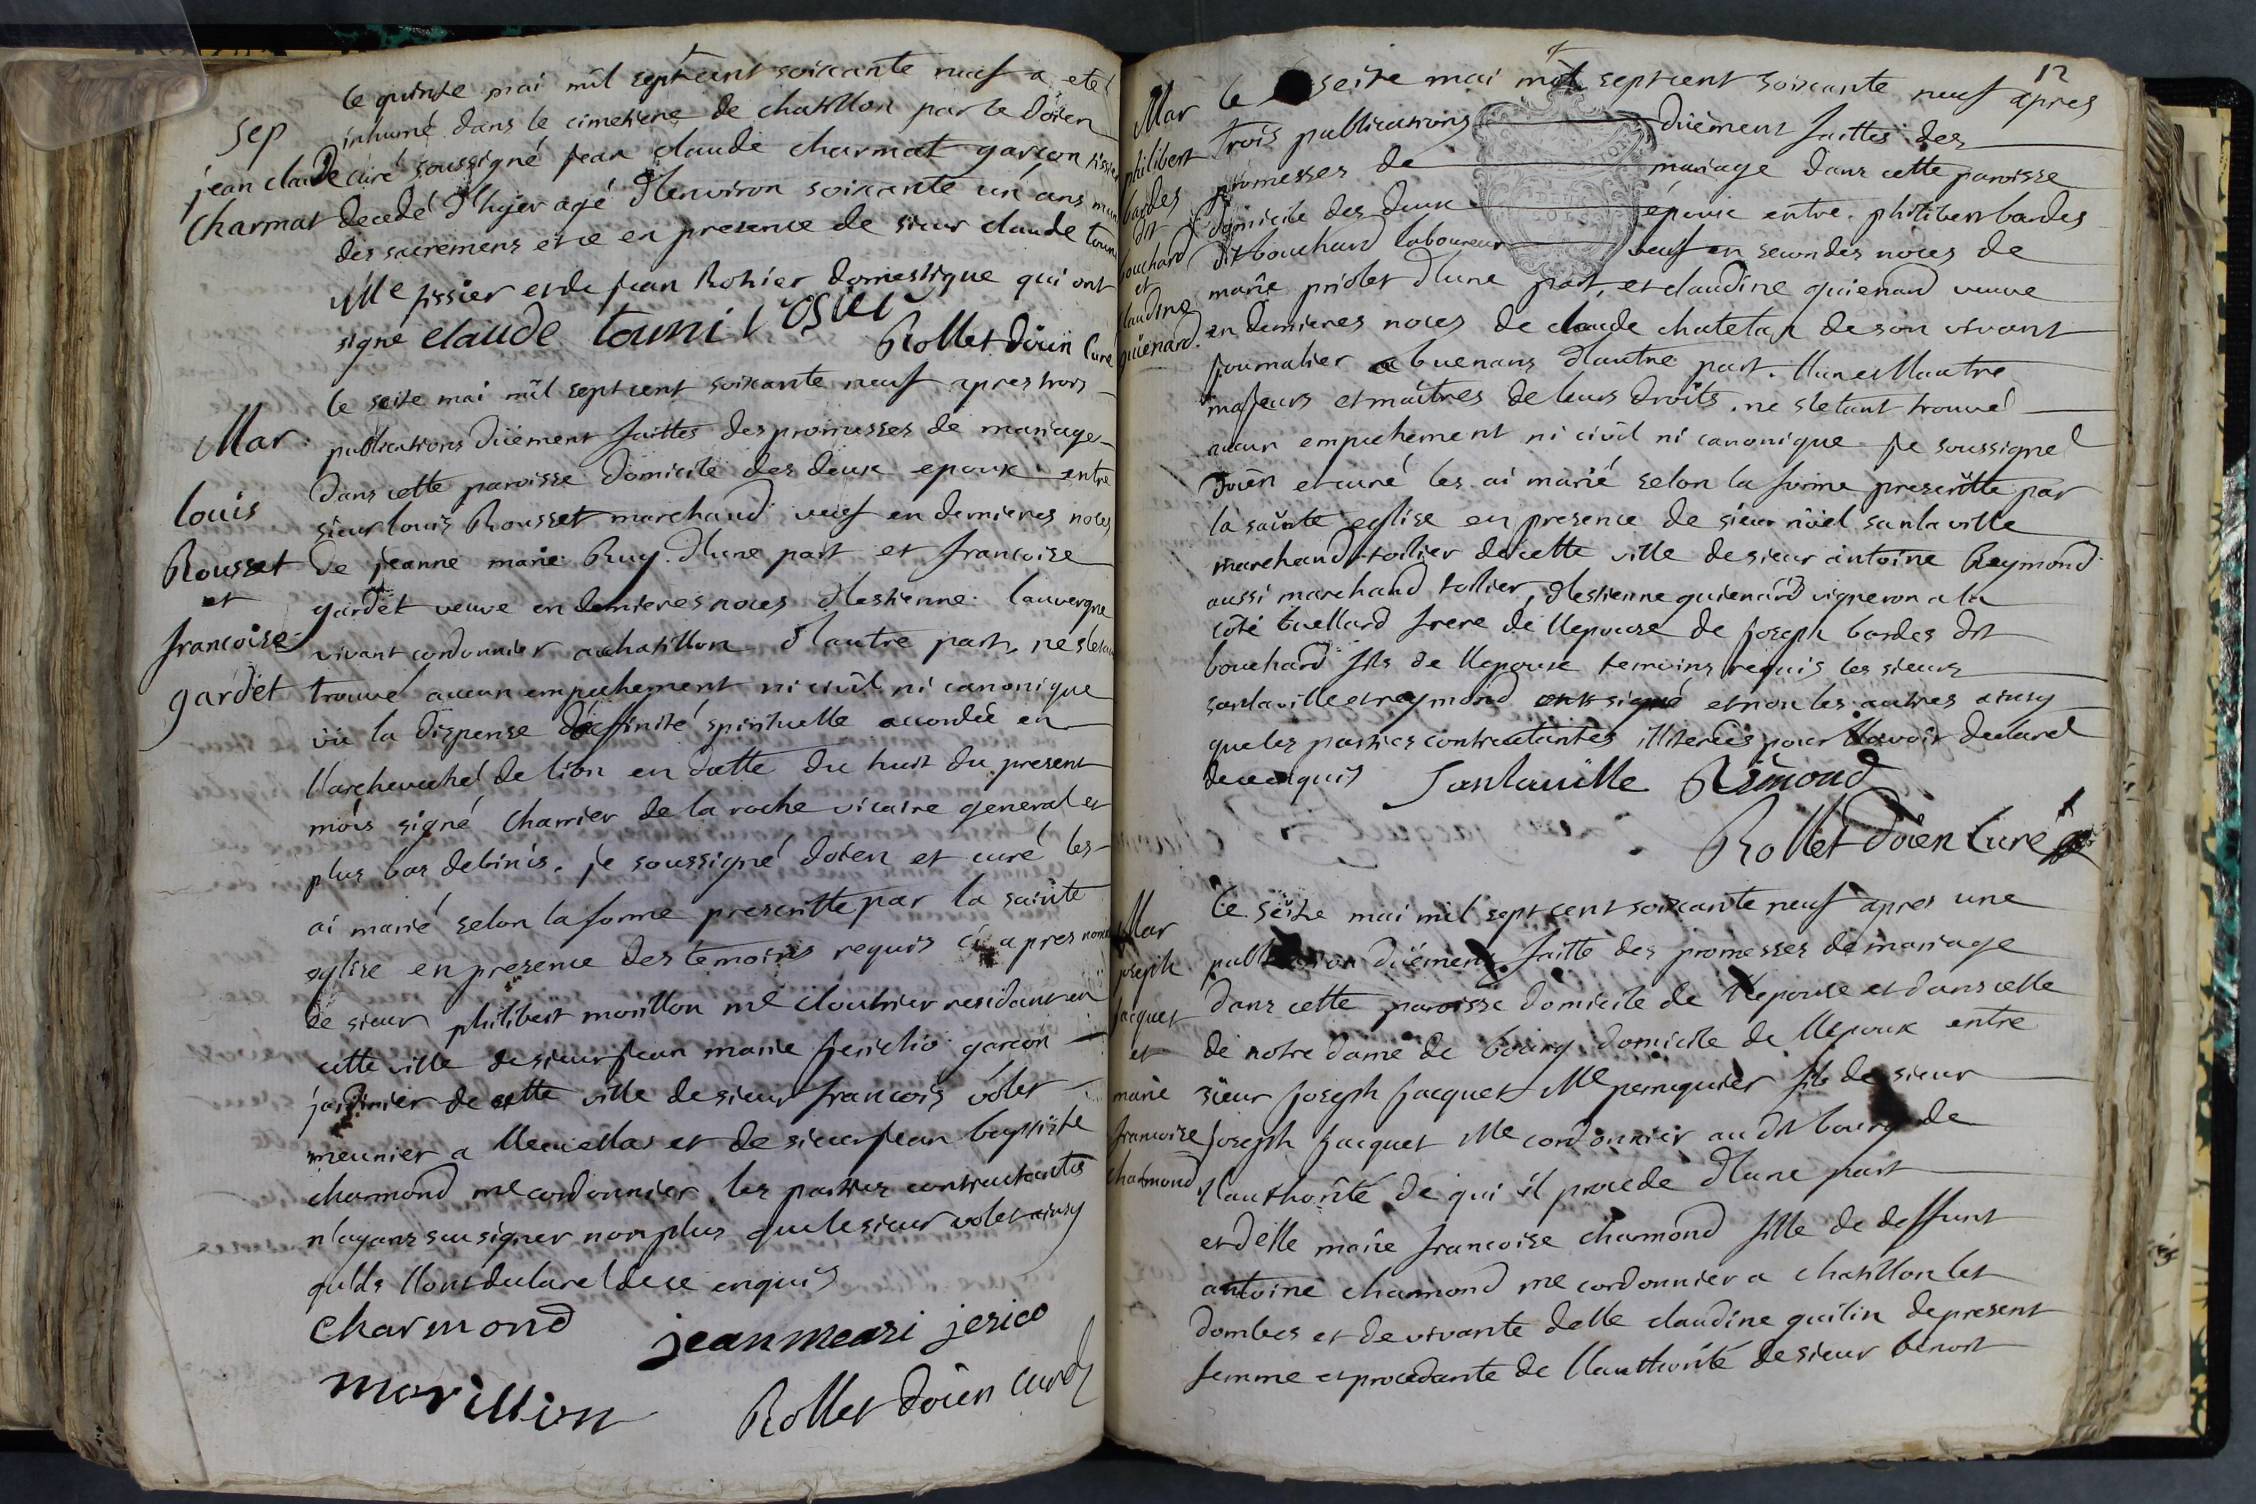 Sep
jean claude
Charmat
le quinze mai mil sept cent soixante neuf a eté
inhumé dans le cimetiere de chatillon par le doïen
curé soussigné jean claude charmat garçon tissier
decedé d'hyer agé d'environ soixante un ans muni
des sacremens et ce en presence de sieur claude tourni
Me tissier et de jean Rohier domestique qui ont
signé claude tourni rosier
Rollet doïen Curé
Mar
louis
Rousset
et
francoise
gardet
le seize mai mil sept cent soixante neuf apres trois
publications düement faittes des promesses de mariage
dans cette paroisse domicile des deux epoux entre
sieur louis Rousset marchand veuf en dernieres noces
de jeanne marie Ruy d'une part et francoise
gardet veuve en dernieres noces d'estienne lauvergne
vivant cordonnier a chatillon d'autre part, ne s'etant
trouvé aucun empechement ni civil ni canonique
vü la dispense d'affinité spirituelle accordée en
l'archeveché de lion en datte du huit du present
mois signé Charrier de la roche vicaire general et
plus bas debinis. je soussigné doïen et curé les
ai marié selon la forme prescritte par la sainte
eglise en presence des témoins requis ci apres nommés
de sieur philibert morillon me cloutrier residant en
cette ville de sieur jean marie jericho garçon
jardinier de cette ville de sieur francois volet
meunier a et de sieur jean baptiste
charmond me cordonnier les parties contractantes
n'ayans su signer non plus que le sieur volet ainsy
qu'ils l'ont declaré de ce enquis
Charmond jean meari jerico
morillion
Rollet doïen curé
12
Mar
philibert
bardes
dit
bouchard
et
claudine
guienard
le seize mai mil sept cent soixante neuf apres
trois publications düement faittes des
promesses de mariage dans cette paroisse
domicile des deux époux entre philibert bardes
dit bouchard laboureur veuf en secondes noces de
marie priolet d'une part, et claudine guienard veuve
en dernieres noces de claude chatelan de son vivant
journalier a buenans d'autre part. l'un et l'autre
majeurs et maîtres de leurs droits. ne s'etant trouvé
aucun empechement ni civil ni canonique je soussigné
doïen et curé les ai marié selon la forme prescritte par
la sainte eglise en presence de sieur noël sanlaville
marchand toilier de cette ville de sieur antoine Reymond
aussi marchand toilier, d'estienne guienard vigneron a la
côte buellard frere de l'epouse de joseph bardes dit
bouchard fils de l'epoux temoins requis les sieurs
sanlaville et reymond ont signé et non les autres ainsy
que les parties contractantes illiterées pour l'avoir declaré
de ce enquis Sanlaville Rémond
Rollet doïen Curé
Mar
joseph
jacquet
et
marie
francoise
charmond
Le seize mai mil sept cent soixante neuf apres une
publication düement faitte des promesses de mariage
dans cette paroisse domicile de l'epouse et dans celle
de notre dame de bourg domicile de l'epoux entre
sieur joseph jacquet Me perruquier fils de sieur
joseph jacquet Me cordonnier au dit bourg de
l'authorité de qui il procede d'une part
et delle marie francoise charmond fille de deffunt
antoine charmond me cordonnier a chatillon les
dombes et de vivante delle claudine guilin de present
femme et procedante de l'authorité de sieur benoit